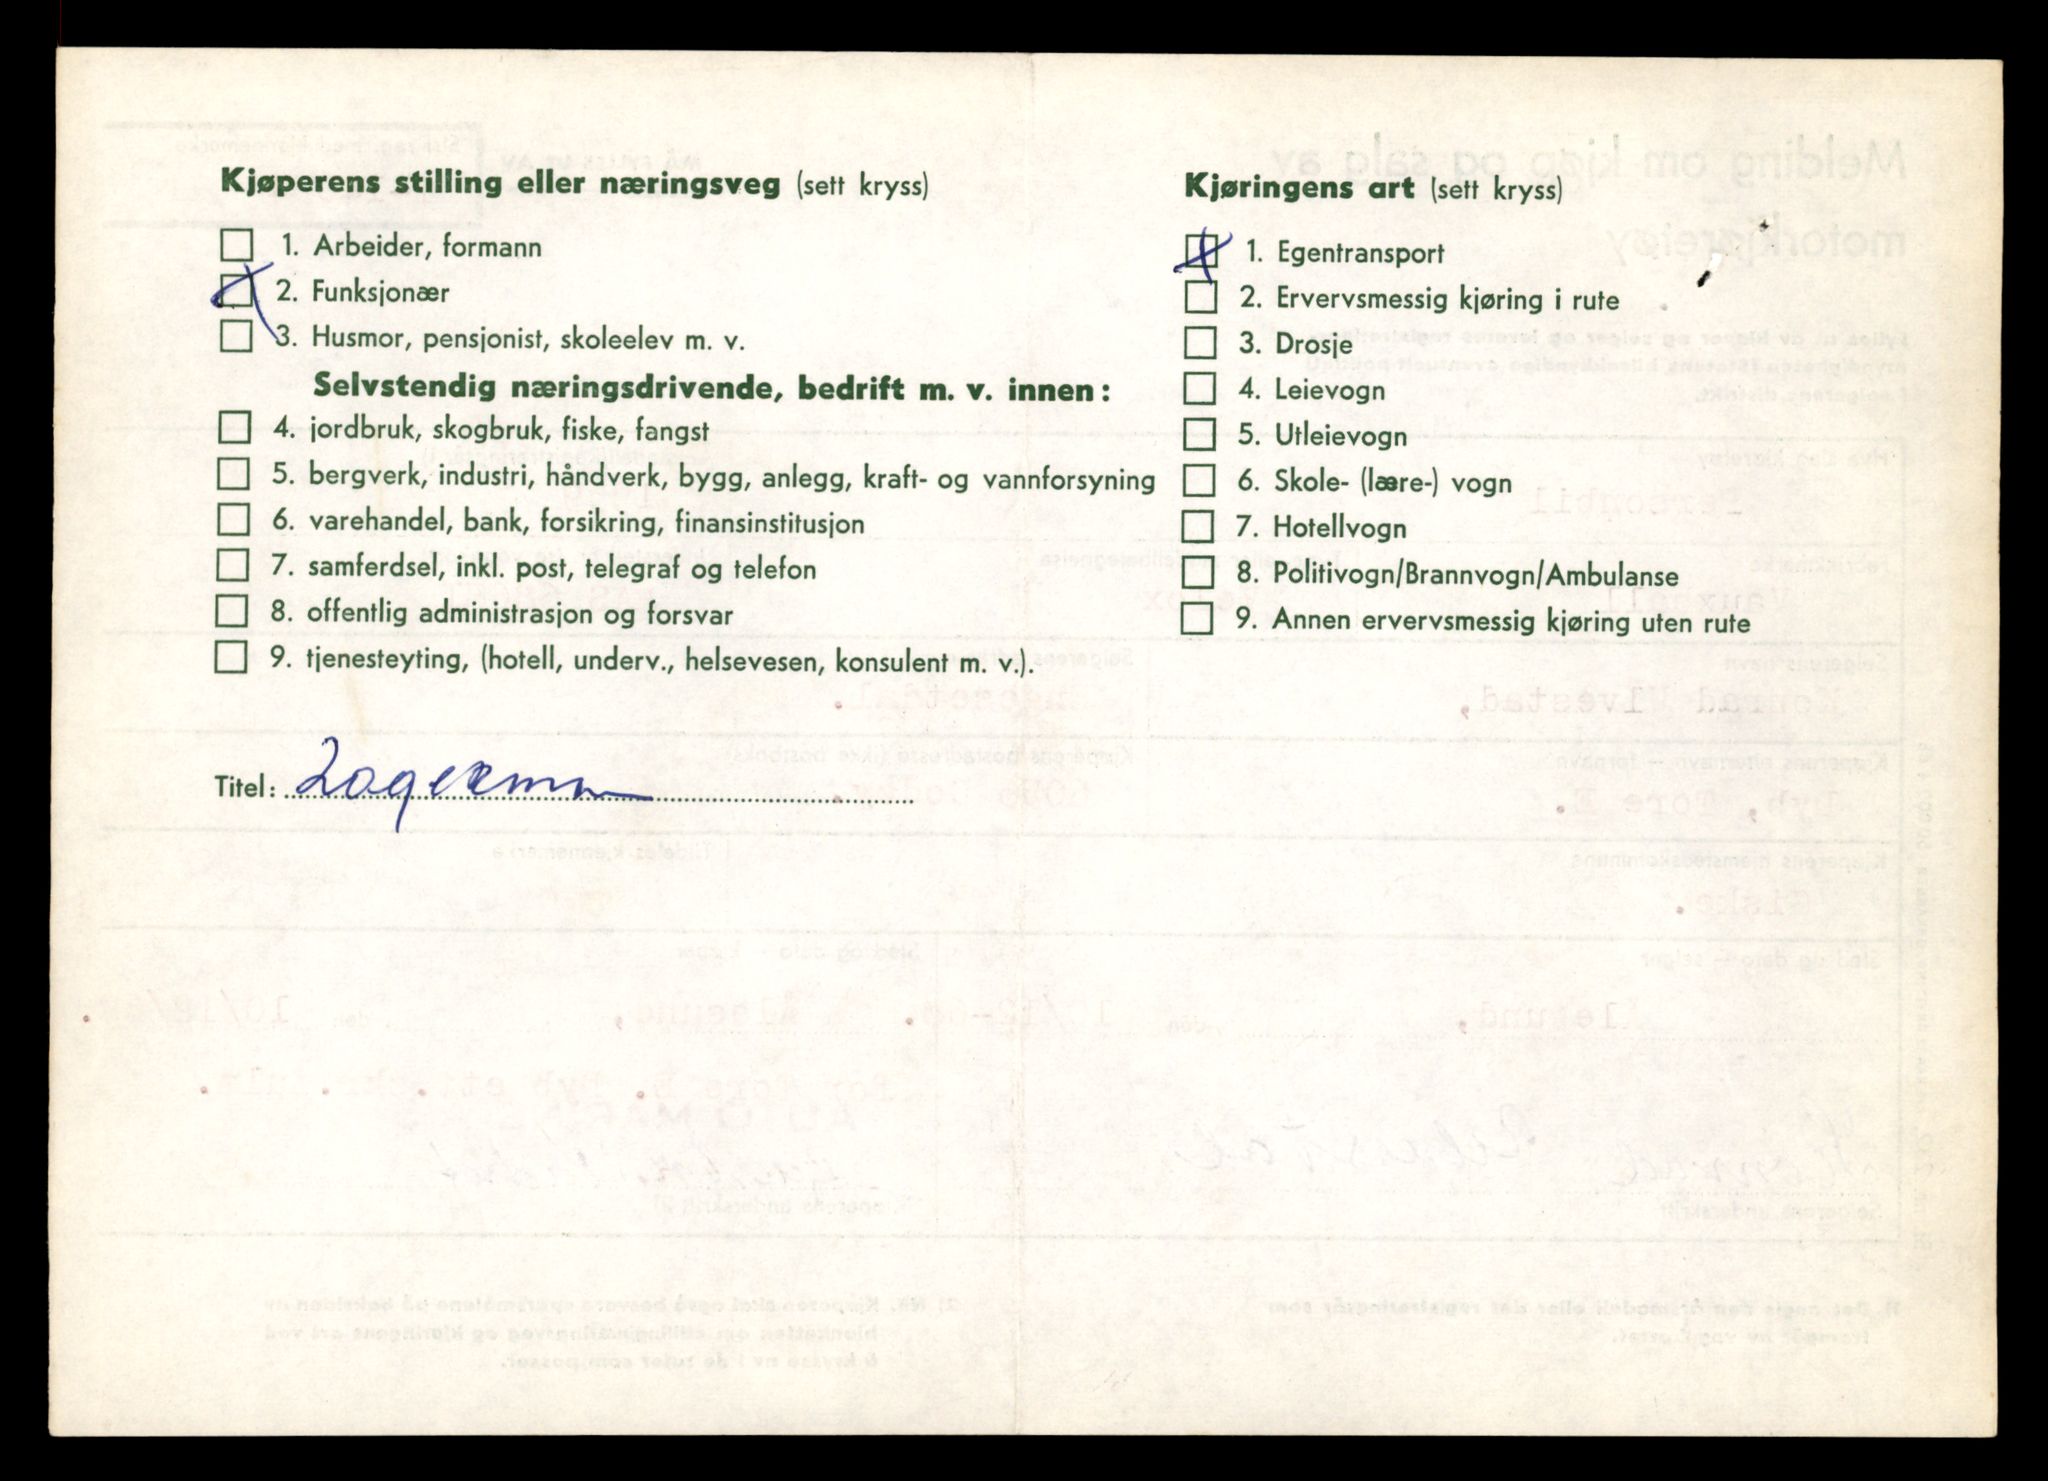 Kjøperens stilling eller næringsveg (sett kryss)
1. Arbeider, formann
2. Funksjonær
3. Husmor, pensjonist, skoleelev m. v.
Selvstendig næringsdrivende, bedrift m. v. innen:
4. jordbruk, skogbruk, fiske, fangst
5. bergverk, industri, håndverk, bygg, anlegg, kraft- og vannforsyning
6. varehandel, bank, forsikring, finansinstitusjon
7. samferdsel, inkl. post, telegraf og telefon
8. offentlig administrasjon og forsvar
9. tjenesteyting, (hotell, underv., helsevesen, konsulent m. v.).
Titel: Lagermann
Kjøringens art (sett kryss)
1. Egentransport
2. Ervervsmessig kjøring i rute
3. Drosje
4. Leievogn
5. Utleievogn
6. Skole- (lære-) vogn
7. Hotellvogn
8. Politivogn/Brannvogn/Ambulanse
9. Annen ervervsmessig kjøring uten rute